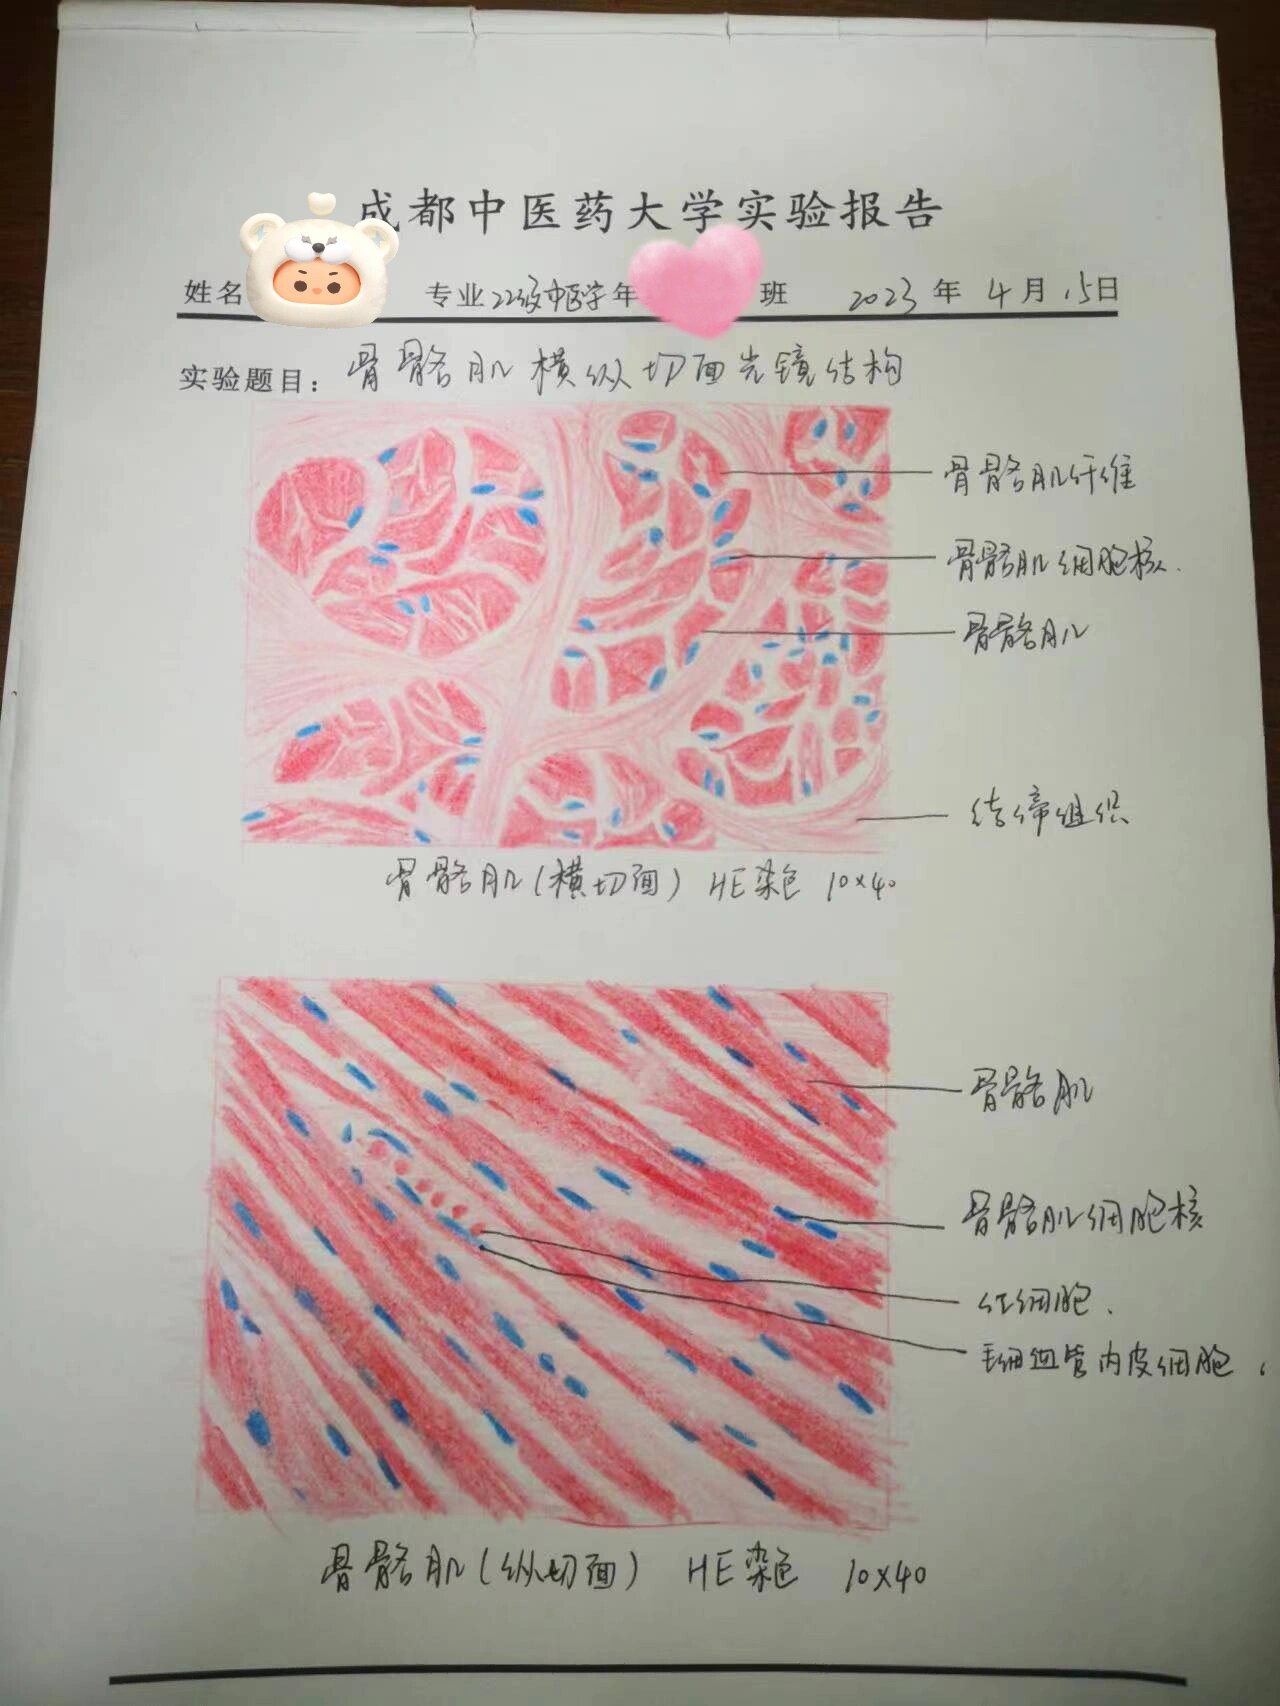 成都中医药大学实验报告
姓名 专业22级中医学年 班 2023年4月15日
实验题目：骨骼肌横纵切面光镜结构
骨骼肌纤维
骨骼肌细胞核.
骨骼肌
结缔组织
骨骼肌(横切面) HE染色 10×40
骨骼肌
骨骼肌细胞核
红细胞.
毛细血管内皮细胞.
骨骼肌(纵切面) HE染色 10×40